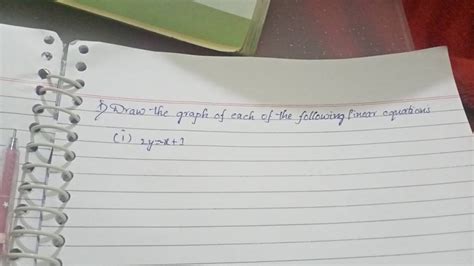 1) Draw the graph of each of the following linear equations
(i) 2y=x+1